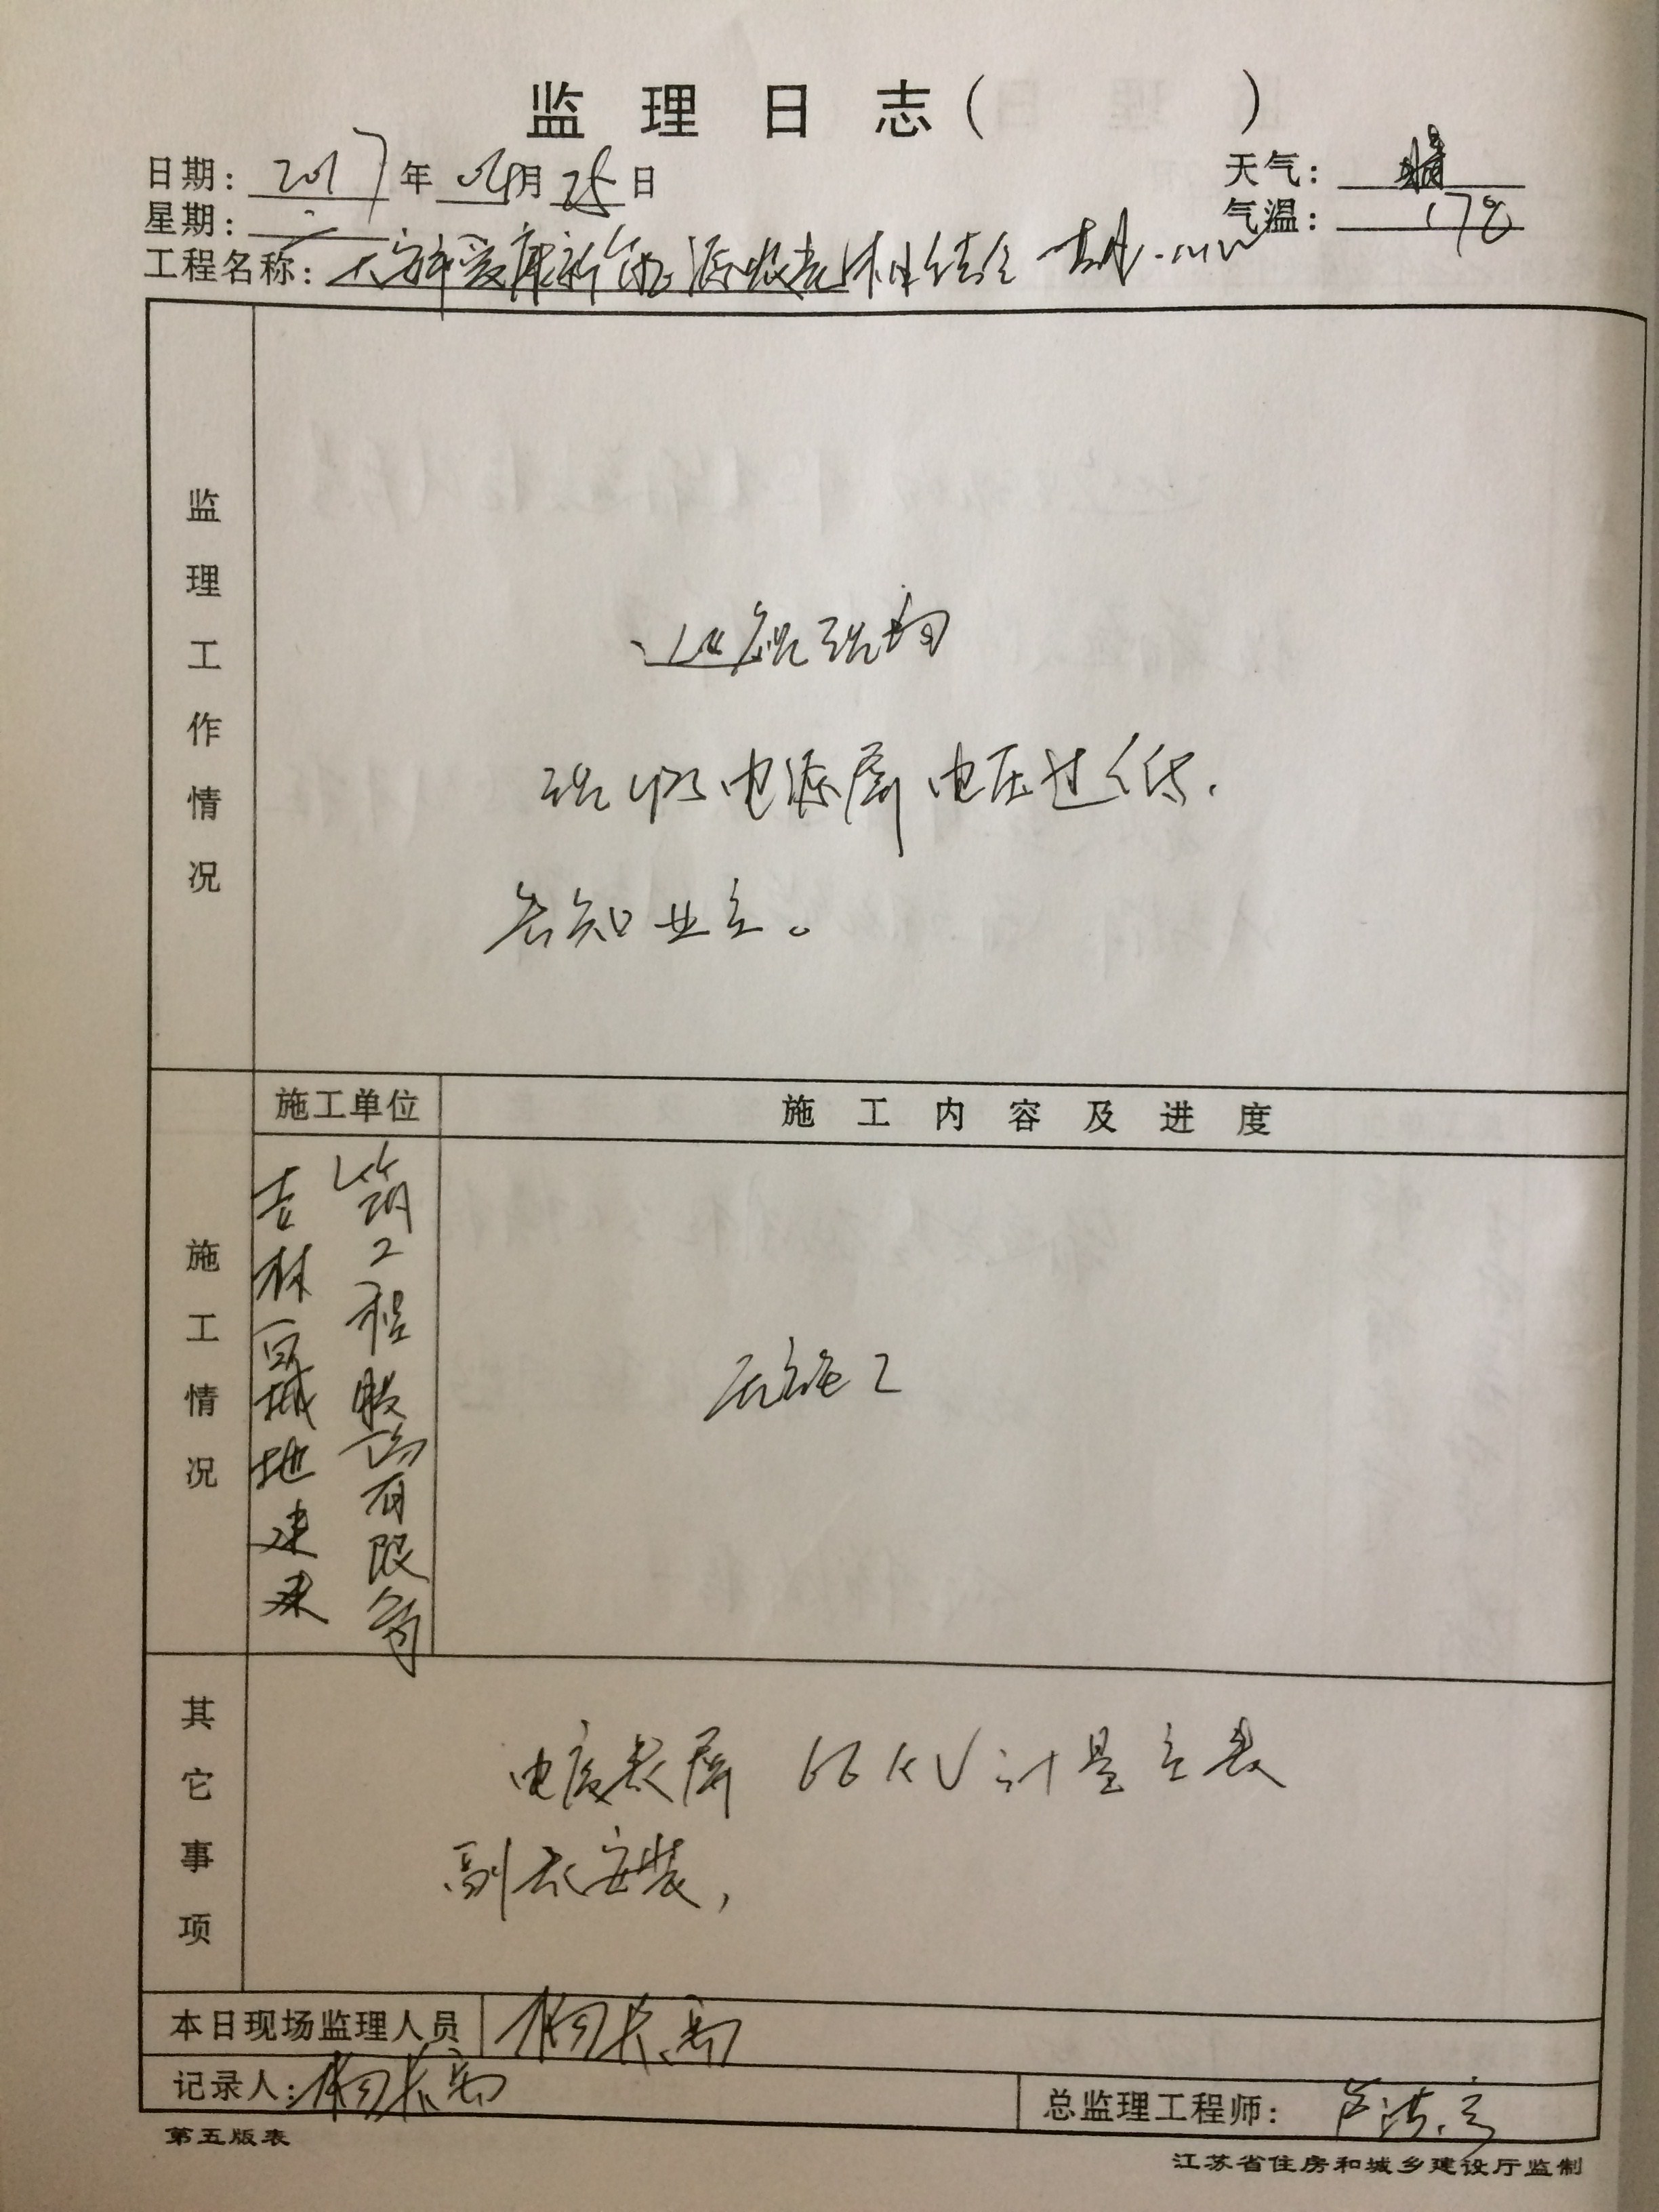 监理日志( )
日期: 2017年04月25日
天气: 晴
星期: 二
气温: 178
工程名称: 大安爱康新能源农光相结合
监理工作情况
巡视现场
现场电源屏电压过低.
告知业主。
施工情况
施工单位
施工内容及进度
吉林宣城地建
筑工程股份有限
无施工
其它事项
电度表屏 66KV计量主表
副表安装,
本日现场监理人员 杨长岛
记录人: 杨长岛
总监理工程师:
第五版表
江苏省住房和城乡建设厅监制